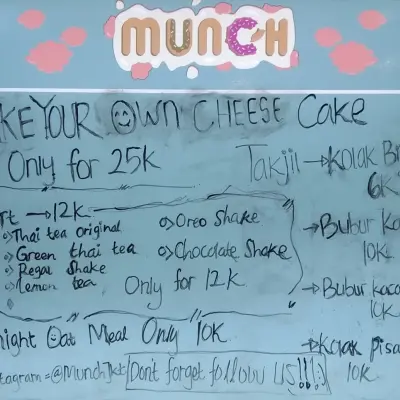 MUNCH
AKE YOUR OWN CHEESE Cake
Only for 25K
Takjil → Kolak B
6K
rt → 12K
Thai tea original
Green thai tea
Regal Shake
Lemon tea
Oreo Shake
Chocolate Shake
Only for 12K
Bubur Ka
10K
Bubur kaca
10K
night Oat Meal Only 10K
Kolak pisa
10K
tagram = @MunchJkt
Don't forget follow US!!!:)